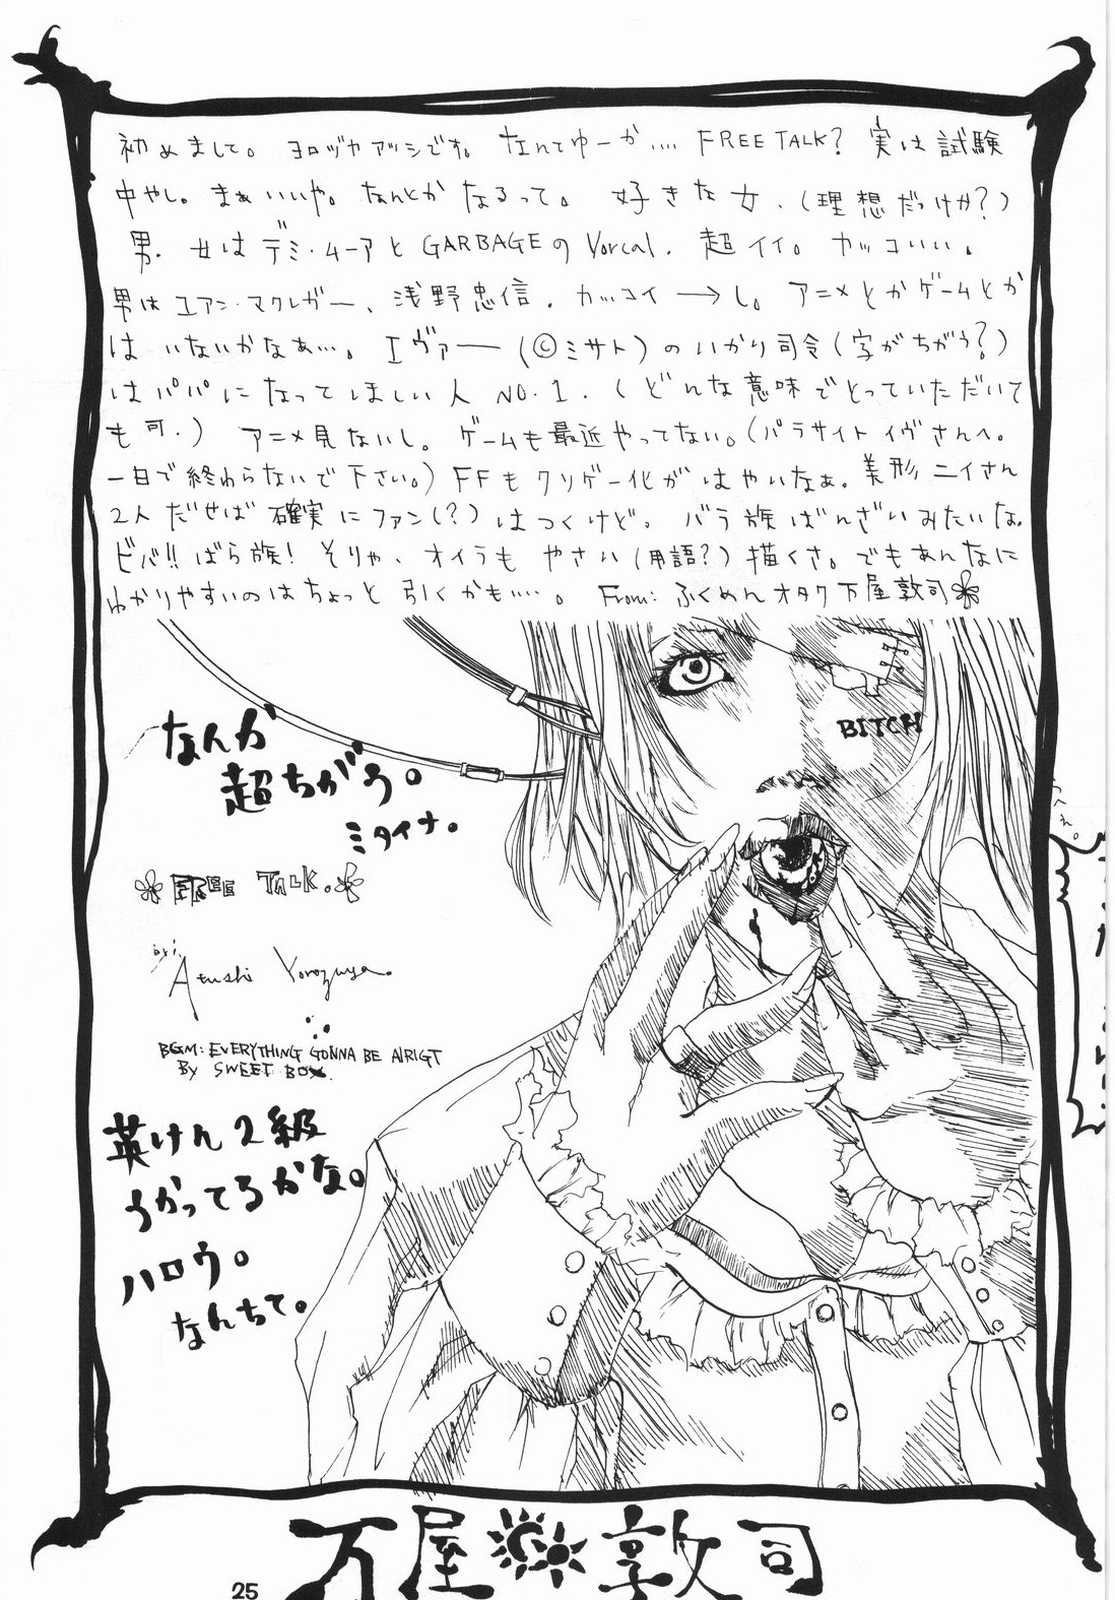 初めまして。ヨロヅヤアツシです。なんてゆーか…. FREE TALK? 実は試験
中やし。まぁいいや。なんとかなるって。好きな女、(理想だっけか?)
男. 女はデミ・ムーアとGARBAGEのVorcal. 超イイ。カッコいい。
男はユアン・マクレガー、浅野忠信. カッコイーし。アニメとかゲームとか
はいないかなぁ…。エヴァー(©ミサト)のいかり司令(字がちがう?)
はパパになってほしい人 NO.1. (どんな意味でとっていただいて
も可.) アニメ見ないし。ゲームも最近やってない。(パラサイトイヴさんへ。
一日で終わらないで下さい。) FFもクソゲー化がはやいなぁ。美形ニイさん
2人だせば確実にファン(?)はつくけど。バラ族ばんざいみたいな。
ビバ!!ばら族! そりゃ、オイラもやさい(用語?)描くさ。でもあんなに
わかりやすいのはちょっと引くかも….。From: ふくめんオタク万屋敦司
BITCH
なんか
超ちがう。
ミタイナ。
FREE TALK.
by: Atushi Yorozuya.
BGM: EVERYTHING GONNA BE ALRIGT
BY SWEET BOX.
英けん2級
うかってるかな。
ハロウ。
なんちて。
万屋敦司
25